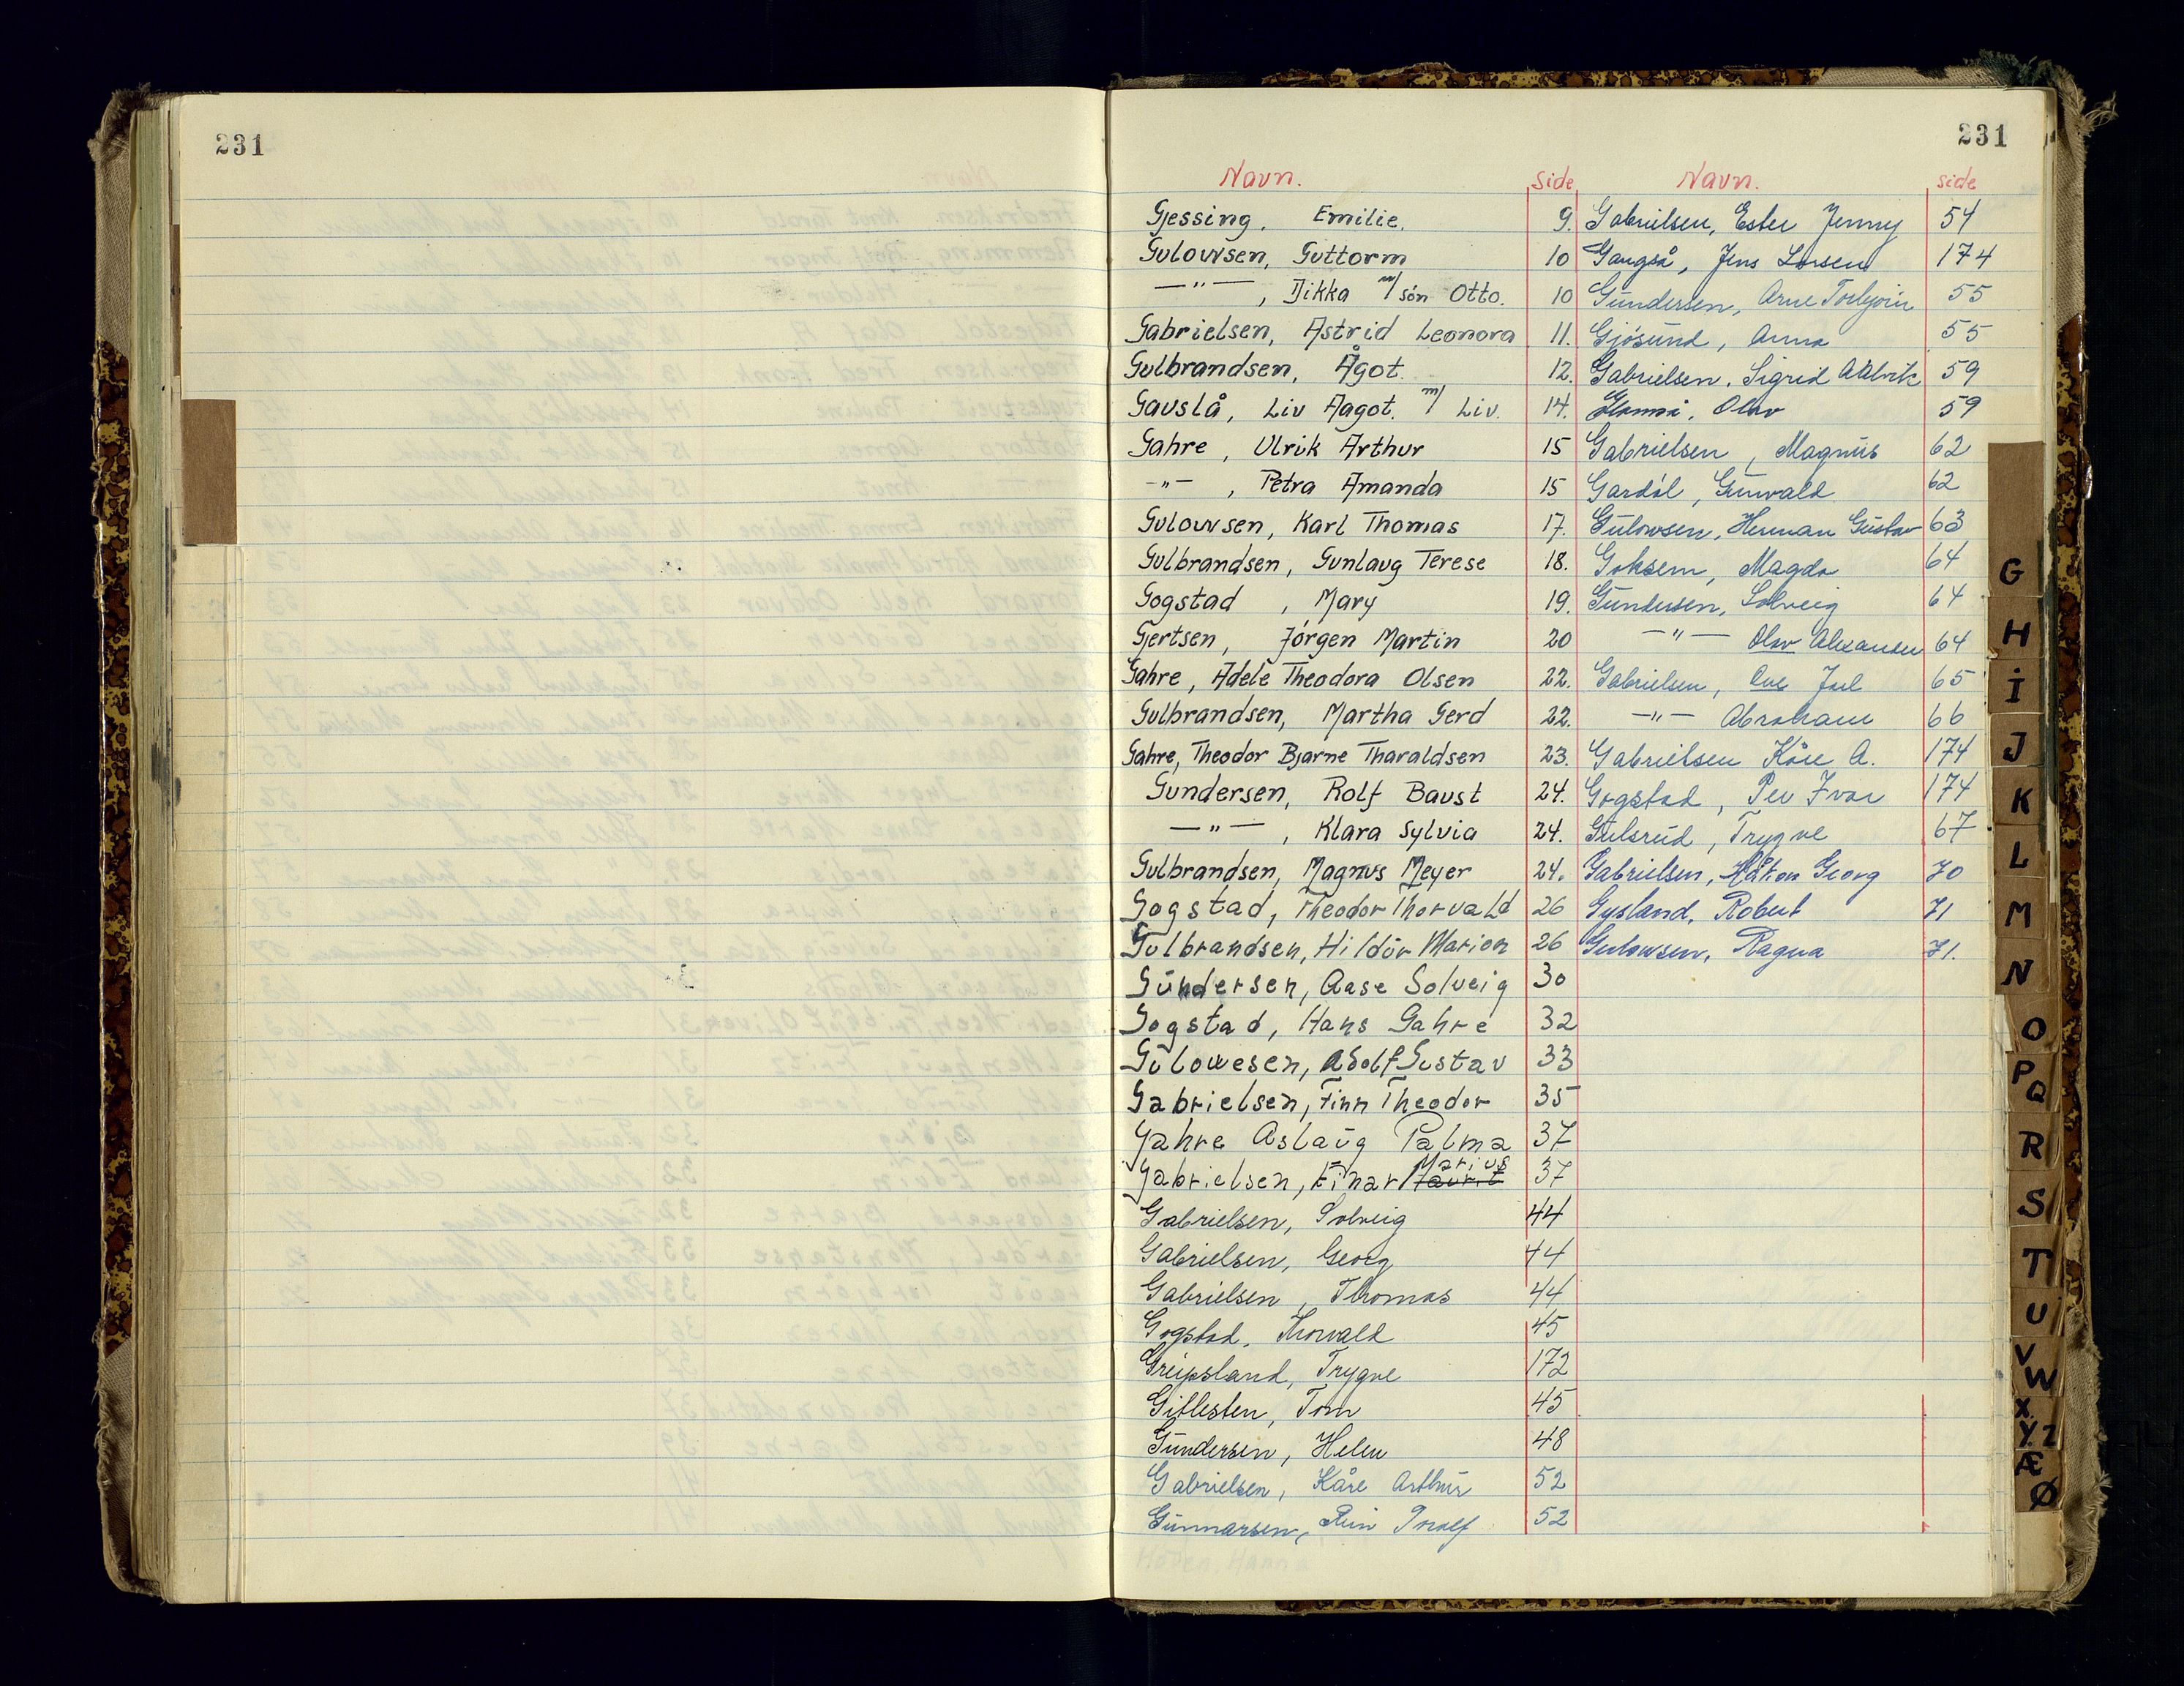 231
231
Navn. Side
Gjessing, Emilie. 9.
Gulowsen, Guttorm 10
—"— , Dikka m/ sön Otto. 10
Gabrielsen, Astrid Leonora 11.
Gulbrandsen, Ågot. 12.
Gauslå, Liv Aagot. m/ Liv. 14.
Gahre, Ulrik Arthur 15
-"- , Petra Amanda 15
Gulowsen, Karl Thomas 17.
Gulbrandsen, Gunlaug Terese 18.
Gogstad, Mary 19.
Gjertsen, Jörgen Martin 20
Gahre, Adele Theodora Olsen 22.
Gulbrandsen, Martha Gerd 22.
Gahre, Theodor Bjarne Tharaldsen 23.
Gundersen, Rolf Baust 24.
—"— , Klara Sylvia 24.
Gulbrandsen, Magnus Meyer 24.
Gogstad, Theodor Thorvald 26
Gulbrandsen, Hildur Marion 26
Gundersen, Aase Solveig 30
Gogstad, Hans Gahre 32
Gulowesen, Adolf Gustav 33
Gabrielsen, Finn Theodor 35
Gahre Aslaug Palma 37
Gabrielsen, Einar Marius 37
Gabrielsen, Solveig 44
Gabrielsen, Georg 44
Gabrielsen, Thomas 44
Gogstad, Thorvald 45
Greipsland, Trygve 172
Gitlesten, Tom 45
Gundersen, Helen 48
Gabrielsen, Kåre Arthur 52
Gunnarsen, 52
Navn. side
Gabrielsen, Ester Jenny 54
Gangså, Jens Larsen 174
Gundersen, Arne Torbjörn 55
Gjösund, Anna 55
Gabrielsen, Sigrid 59
Olav 59
Gabrielsen, Magnus 62
Gardöl, Grunvald 62
Gulowsen, Herman Gustav 63
Goksem, Magda 64
Gundersen, Solveig 64
—"— Olav Alexander 64
Gabrielsen, Ove Juel 65
—"— Abraham 66
Gabrielsen Kåre A. 174
Gogstad, Per Ivar 174
Gulsrud, Trygve 67
Gabrielsen, Håkon Georg 70
Gysland, Robert 71
Gulowsen, Ragna 71.
G
H
I
J
K
L
M
N
O
P
Q
R
S
T
U
V
W
X.
Y Z
Æ
Ø